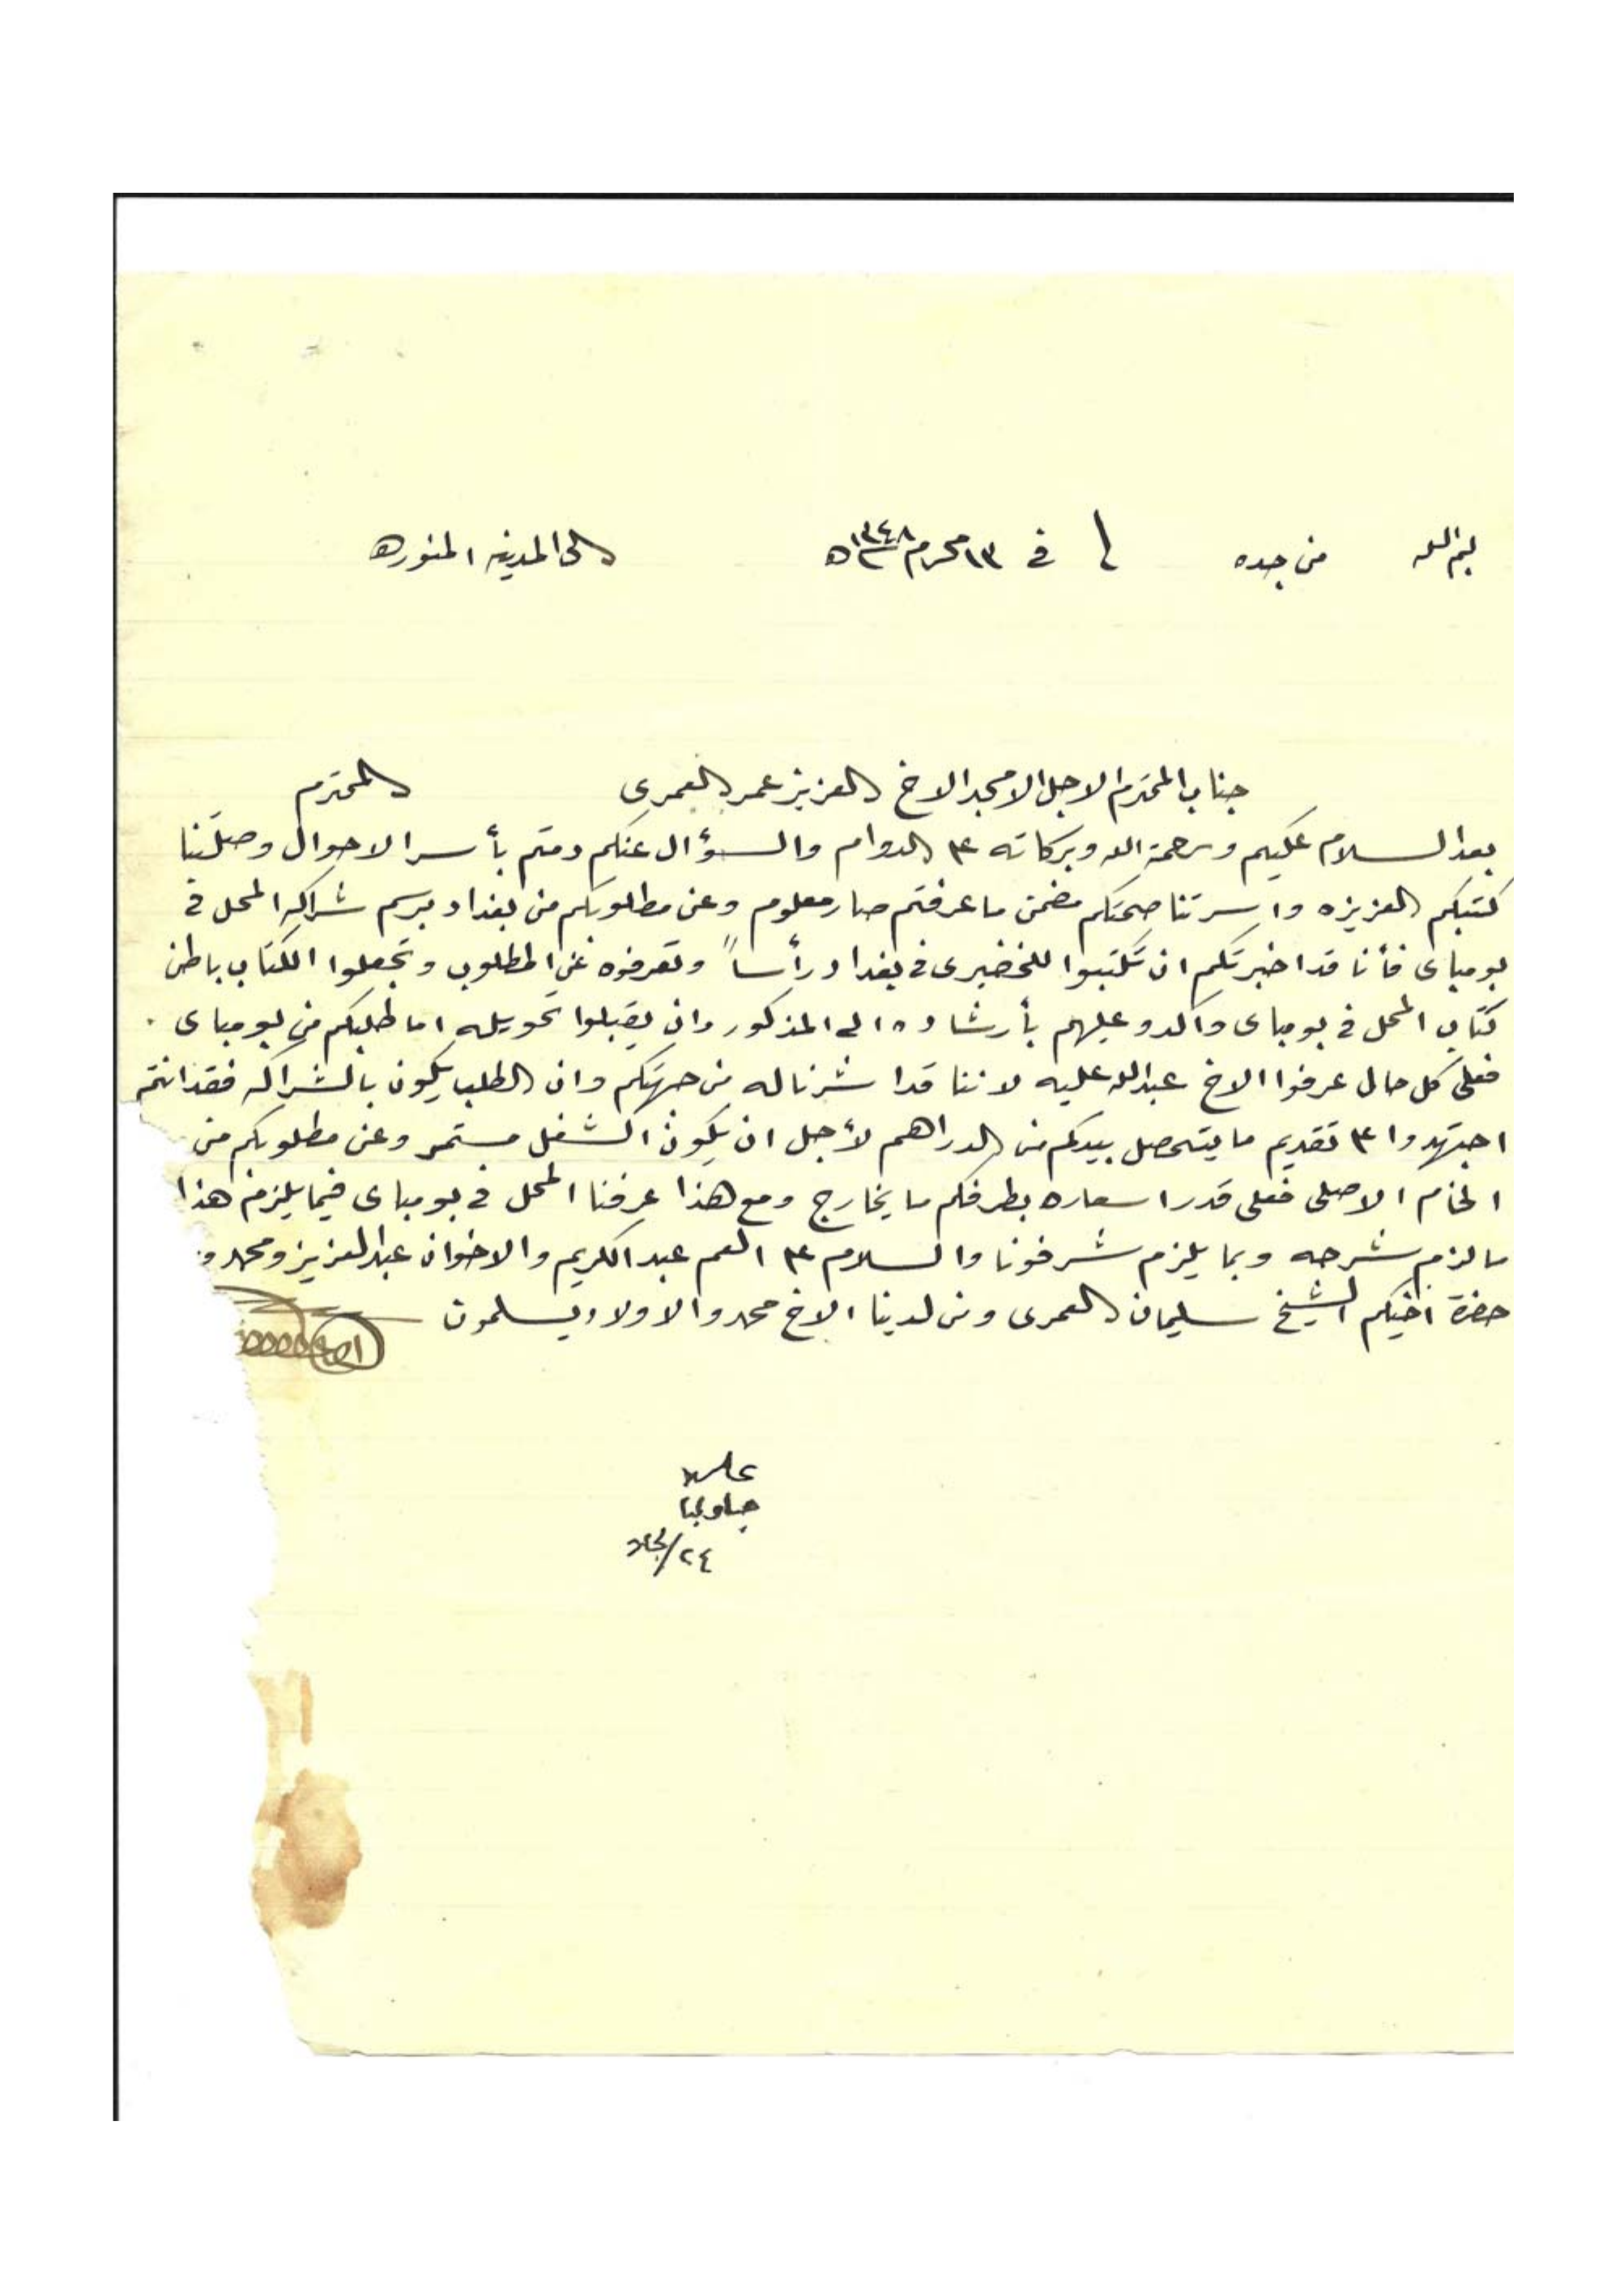 بسم الله من جده في ١٣ محرم ١٣٤٨ه الى المدينه المنوره
جناب المحترم الاجل الامجد الاخ العزيز عمر العمرى المحترم
بعد السلام عليكم ورحمة الله وبركاته ع الدوام والسؤال عنكم دمتم بأسر الاحوال وصلتنا
كتبكم العزيزه واسرتنا صحتكم مضمن ما عرفتم صار معلوم وعن مطلوبكم من بغداد برسم شراكه المحل في
بومباى فأنا قد اخبرتكم ان تكتبوا للخضيرى في بغداد رأساً وتعرفوه عن المطلوب وتجعلوا الكتاب باطن
كتاب المحل في بومباى واكدو عليهم بأرشاده الى المذكور وان يقبلوا تحويله اما طلبكم من بومباى
فعلى كل حال عرفوا الاخ عبدالله عليه لاننا قد اشرنا له من جهتكم وان الطلب يكون بالشراكه فقد انتم
اجتهدوا ع تقديم ما يتحصل بيدكم من الدراهم لأجل ان يكون الشغل مستمر وعن مطلوبكم من
الخام الاصلى فعلى قدر اسعاره بطرفكم ما يخارج ومع هذا عرفنا المحل في بومباى فيما يلزم هذا
ما لزم شرحه وبما يلزم شرفونا والسلام ع العم عبد الكريم والاخوان عبد العزيز ومحمد و
حضرة اخيكم الشيخ سليمان العمرى ومن لدينا الاخ محمد والاولاد يسلمون